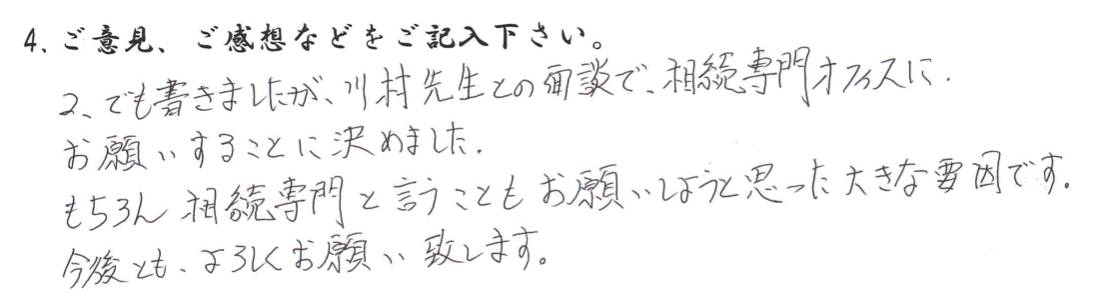 4、ご意見、ご感想などをご記入下さい。
2、でも書きましたが、川村先生との面談で、相続専門オフィスに、
お願いすることに決めました。
もちろん相続専門と言うこともお願いしようと思った大きな要因です。
今後とも、よろしくお願い致します。